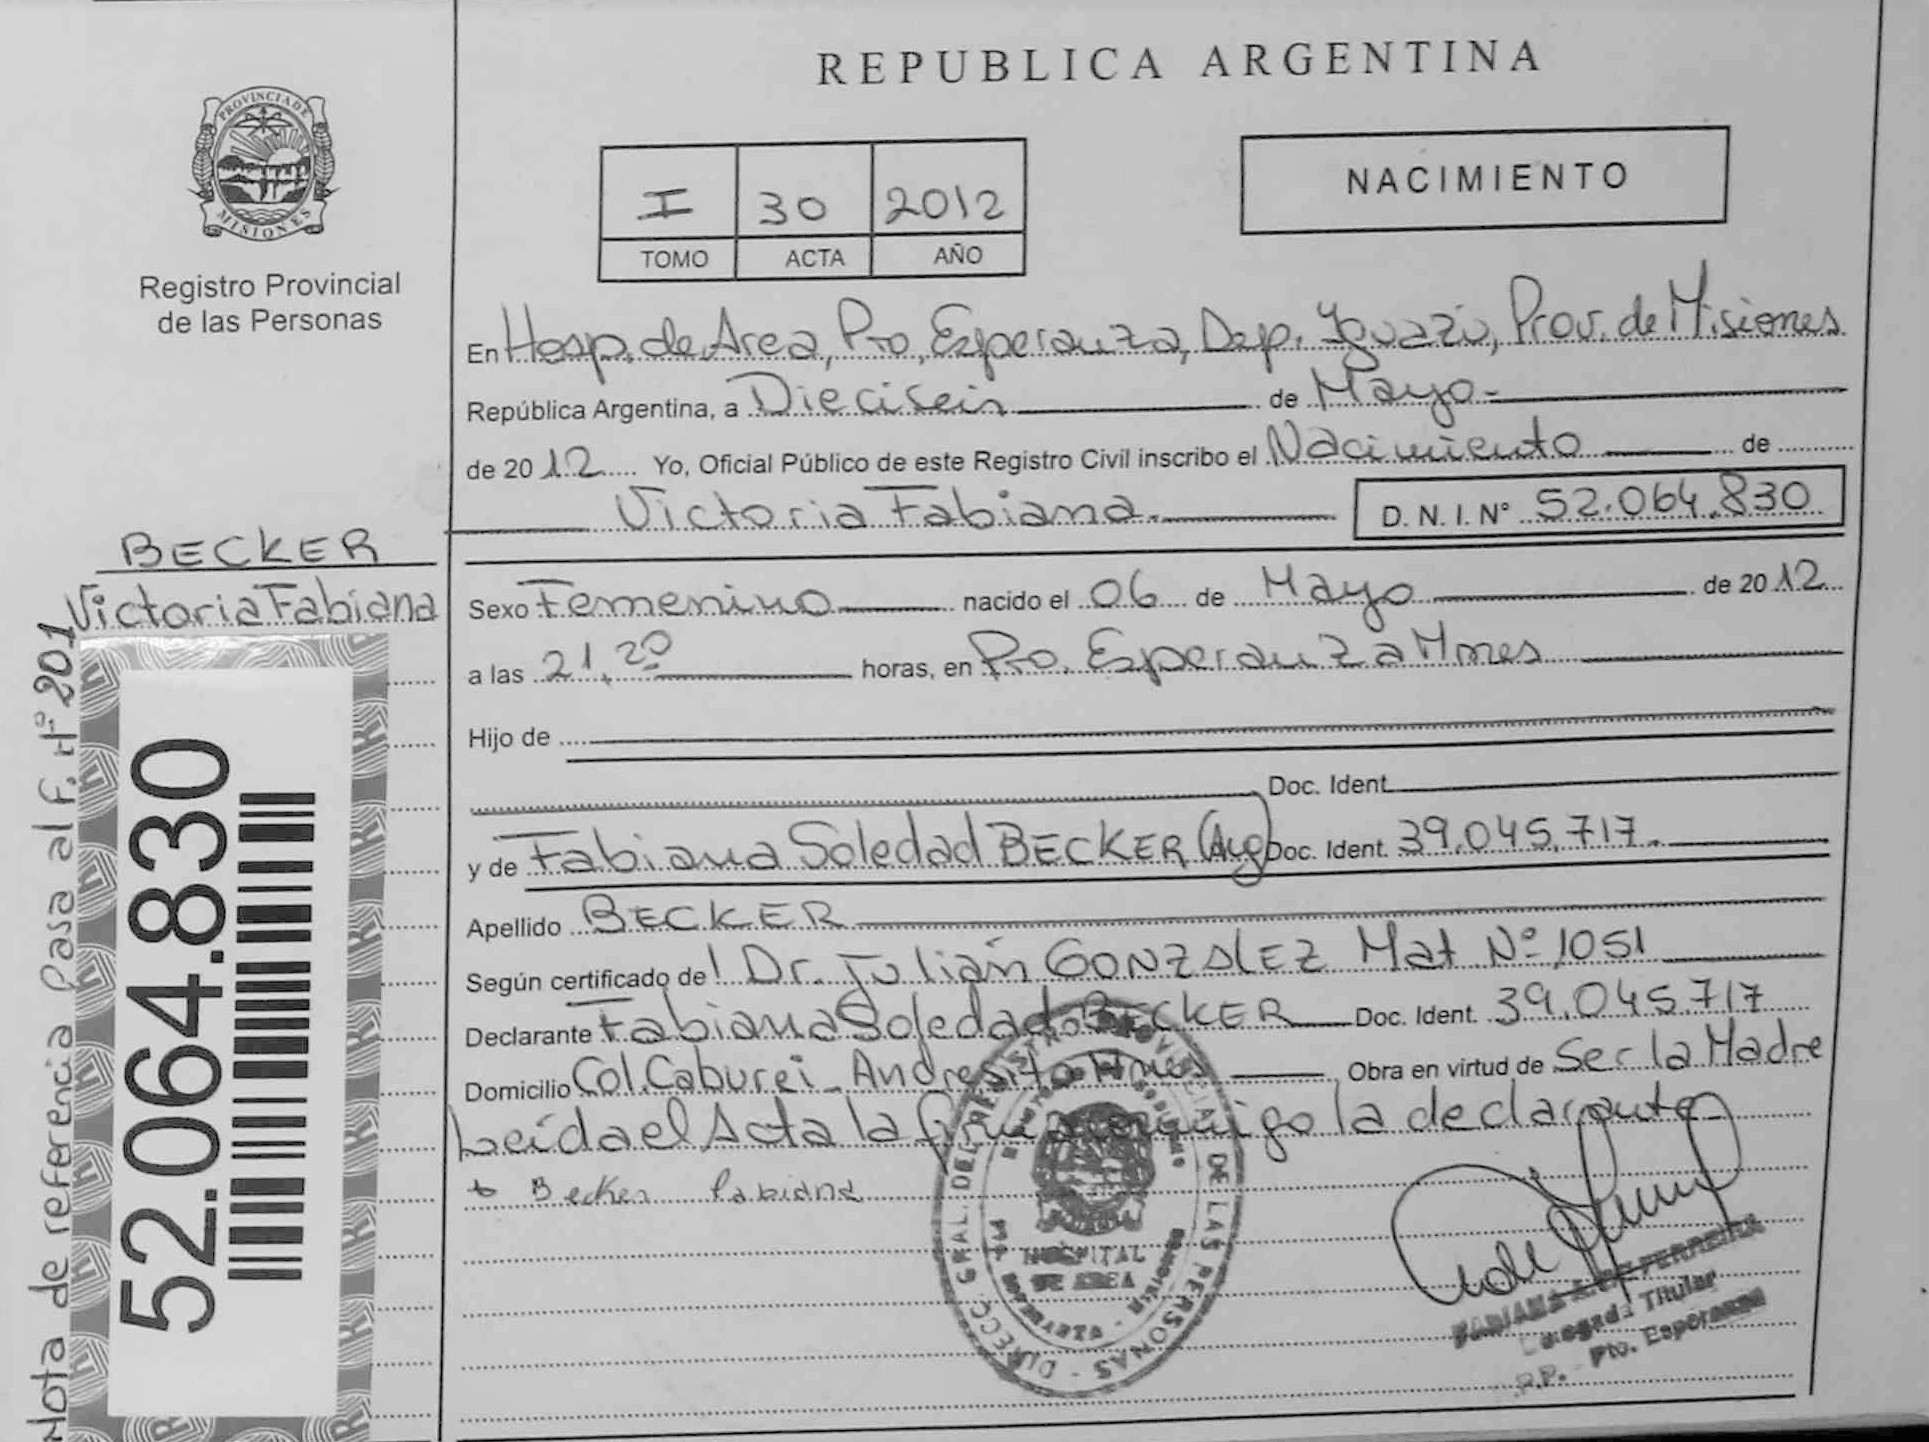 REPUBLICA ARGENTINA
PROVINCIA DE
MISIONES
Registro Provincial
de las Personas
I 30 2012
TOMO ACTA AÑO
NACIMIENTO
En Hosp. de Area, Pto, Esperanza, Dep. Iguazú, Prov. de Misiones
República Argentina, a Dieciseis de Mayo.-
de 2012 Yo, Oficial Público de este Registro Civil inscribo el Nacimiento de
Victoria Fabiana.
D. N. I. N° 52.064.830
BECKER
Victoria Fabiana
Sexo Femenino nacido el 06 de Mayo de 2012
a las 21,20 horas, en Pto. Esperanza Mnes
Hijo de
Doc. Ident.
y de Fabiana Soledad BECKER (Arg) Doc. Ident. 39.045.717.
Apellido BECKER
Según certificado de: Dr. Julián GONZALEZ Mat Nº 1051
Declarante Fabiana Soledad BECKER Doc. Ident. 39.045.717
Domicilio Col. Caburei - Andresito Mnes Obra en virtud de Ser la Madre
Leída el Acta la firma conmigo la declarante
Becker Fabiana
DIRECC. GRAL. DEL REGISTRO PROVINCIAL DE LAS PERSONAS
HOSPITAL
DE AREA
FABIANA A. DE FERREIRA
Delegada Titular
R.P. - Pto. Esperanza
Nota de referencia Pasa al F. Nº 201
52.064.830